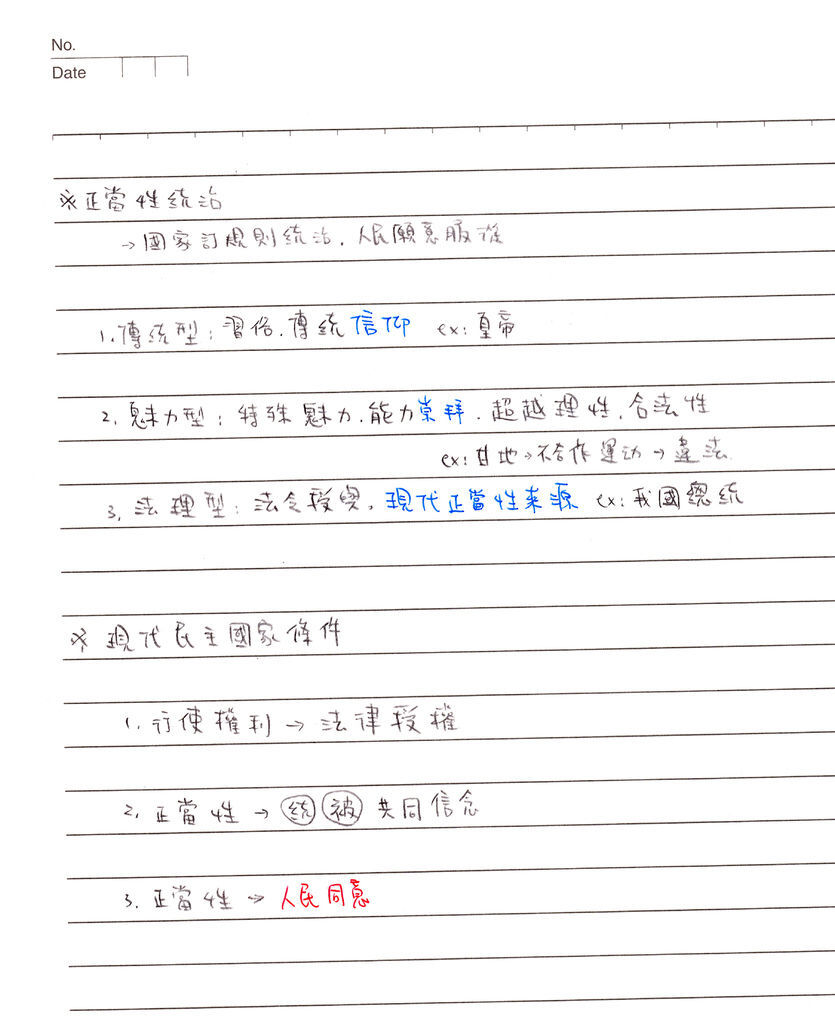 No.
Date
※正當性統治
→國家訂規則統治.人民願意服從
1.傳統型:習俗.傳統信仰 ex:皇帝
2.魅力型:特殊魅力.能力崇拜.超越理性.合法性
ex:甘地→不合作運动→違法
3.法理型:法令授與.現代正當性來源 ex:我國總統
※現代民主國家條件
1.行使權利→法律授權
2.正當性→統被共同信念
3.正當性→人民同意